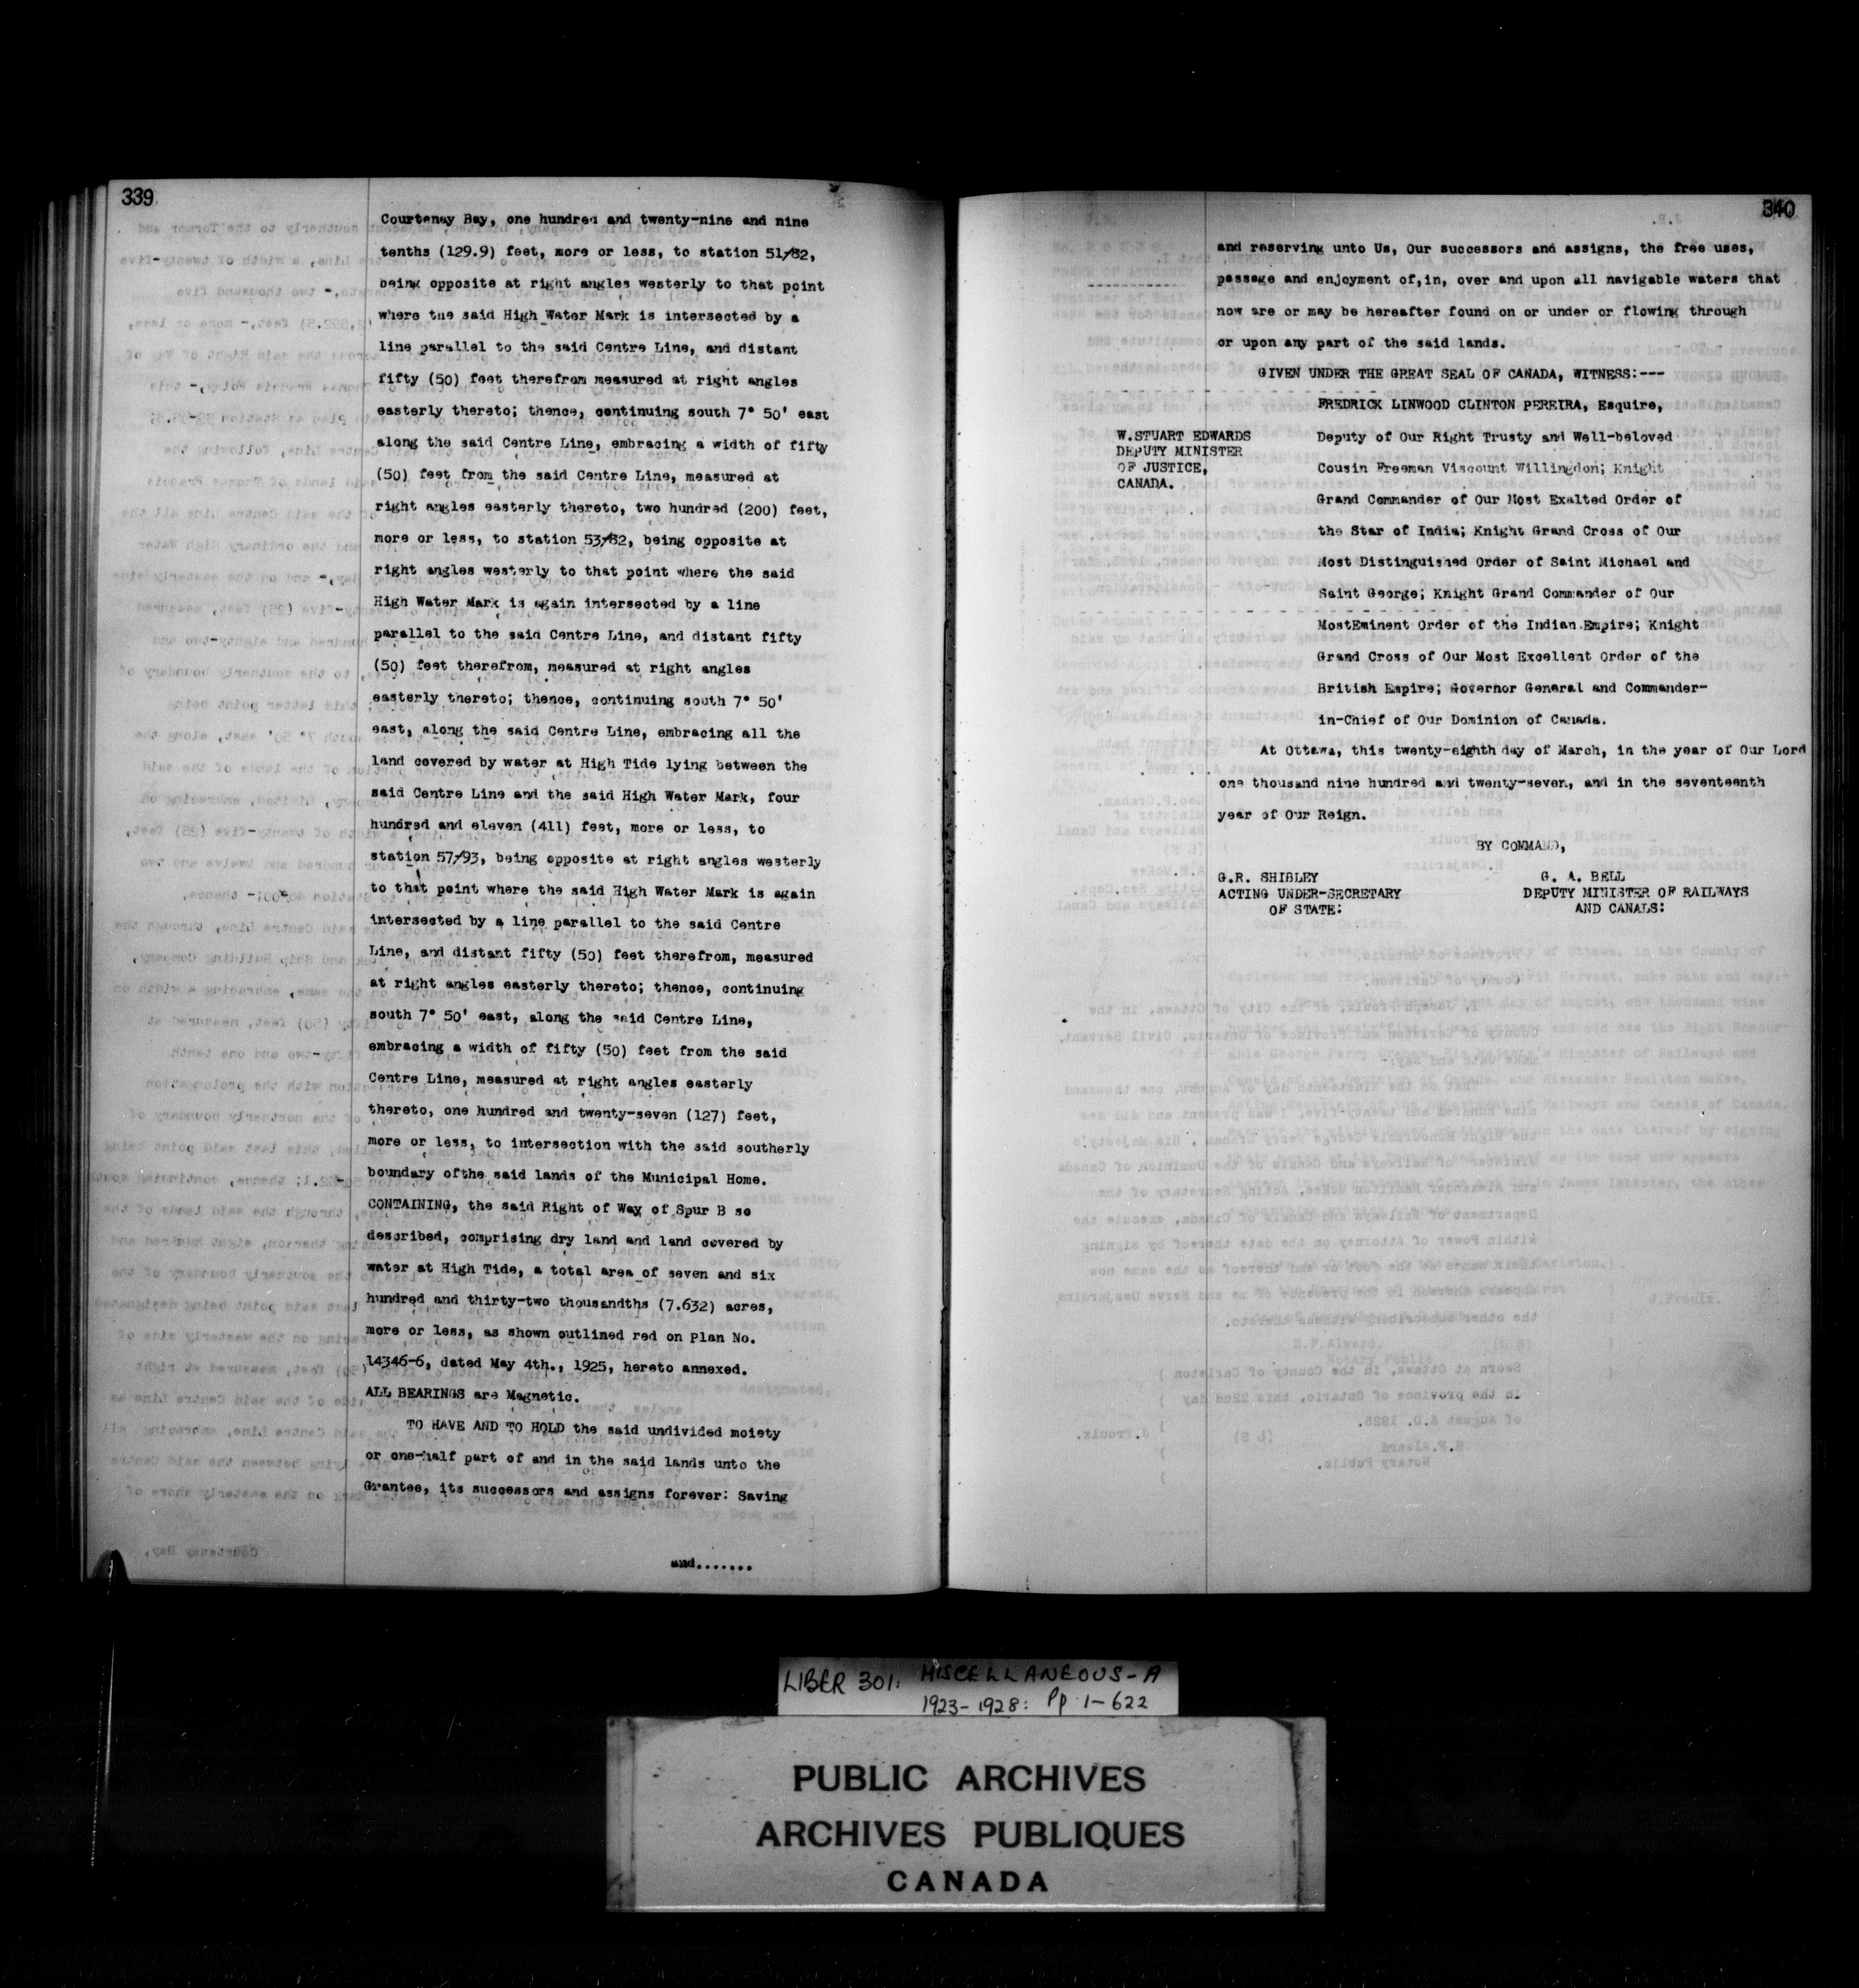 339
Courtenay Bay, one hundred and twenty-nine and nine
tenths (129.9) feet, more or less, to station 51/82,
being opposite at right angles westerly to that point
where the said High Water Mark is intersected by a
line parallel to the said Centre Line, and distant
fifty (50) feet therefrom measured at right angles
easterly thereto; thence, continuing south 7° 50' east
along the said Centre Line, embracing a width of fifty
(50) feet from the said Centre Line, measured at
right angles easterly thereto, two hundred (200) feet,
more or less, to station 53/82, being opposite at
right angles westerly to that point where the said
High Water Mark is again intersected by a line
parallel to the said Centre Line, and distant fifty
(50) feet therefrom, measured at right angles
easterly thereto; thence, continuing south 7° 50'
east, along the said Centre Line, embracing all the
land covered by water at High Tide lying between the
said Centre Line and the said High Water Mark, four
hundred and eleven (411) feet, more or less, to
station 57/93, being opposite at right angles westerly
to that point where the said High Water Mark is again
intersected by a line parallel to the said Centre
Line, and distant fifty (50) feet therefrom, measured
at right angles easterly thereto; thence, continuing
south 7° 50' east, along the said Centre Line,
embracing a width of fifty (50) feet from the said
Centre Line, measured at right angles easterly
thereto, one hundred and twenty-seven (127) feet,
more or less, to intersection with the said southerly
boundary ofthe said lands of the Municipal Home.
CONTAINING, the said Right of Way of Spur B so
described, comprising dry land and land covered by
water at High Tide, a total area of seven and six
hundred and thirty-two thousandths (7.632) acres,
more or less, as shown outlined red on Plan No.
14346-6, dated May 4th., 1925, hereto annexed.
ALL BEARINGS are Magnetic.
TO HAVE AND TO HOLD the said undivided moiety
or one-half part of and in the said lands unto the
Grantee, its successors and assigns forever: Saving
and.......
340
and reserving unto Us, Our successors and assigns, the free uses,
passage and enjoyment of,in, over and upon all navigable waters that
now are or may be hereafter found on or under or flowing through
or upon any part of the said lands.
GIVEN UNDER THE GREAT SEAL OF CANADA, WITNESS:---
FREDRICK LINWOOD CLINTON PEREIRA, Esquire,
W.STUART EDWARDS
DEPUTY MINISTER
OF JUSTICE,
CANADA.
Deputy of Our Right Trusty and Well-beloved
Cousin Freeman Viscount Willingdon; Knight
Grand Commander of Our Most Exalted Order of
the Star of India; Knight Grand Cross of Our
Most Distinguished Order of Saint Michael and
Saint George; Knight Grand Commander of Our
MostEminent Order of the Indian Empire; Knight
Grand Cross of Our Most Excellent Order of the
British Empire; Governor General and Commander-
in-Chief of Our Dominion of Canada.
At Ottawa, this twenty-eighth day of March, in the year of Our Lord
one thousand nine hundred and twenty-seven, and in the seventeenth
year of Our Reign.
BY COMMAND,
G.R. SHIBLEY
ACTING UNDER-SECRETARY
OF STATE:
G. A. BELL
DEPUTY MINISTER OF RAILWAYS
AND CANALS:
LIBER 301: MISCELLANEOUS-A
1923-1928: Pp 1-622
PUBLIC ARCHIVES
ARCHIVES PUBLIQUES
CANADA